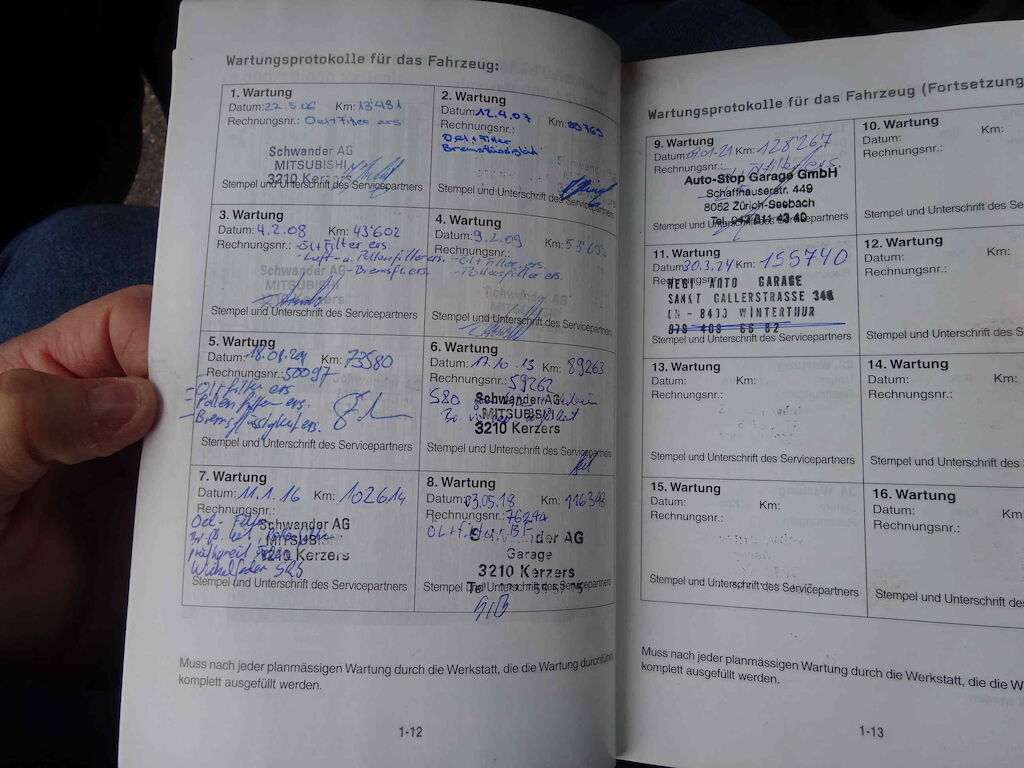 Wartungsprotokolle für das Fahrzeug:
1. Wartung
Datum: 22.5.06 Km: 13'481
Rechnungsnr.: Oel+Filter ers
Schwander AG
MITSUBISHI
3210 Kerzers
Stempel und Unterschrift des Servicepartners
2. Wartung
Datum: 12.4.07 Km:
Rechnungsnr.:
Oel + Filter
Bremsflüssigkeit
Stempel und Unterschrift des Servicepartners
3. Wartung
Datum: 4.2.08 Km: 43'602
Rechnungsnr.: - Öl+Filter ers.
- Luft- u. Pollenfilter ers.
- Bremsfl. ers.
Schwander AG
Stempel und Unterschrift des Servicepartners
4. Wartung
Datum: 9.2.09 Km:
Rechnungsnr.:
- Öl+Filter ers.
- Pollenfilter ers.
Schwander AG
Stempel und Unterschrift des Servicepartners
5. Wartung
Datum: 18.01. Km: 73580
Rechnungsnr.: 50097
- Ölfilter ers
- Polenfilter ers.
- Bremsflüssigkeit ers.
Stempel und Unterschrift des Servicepartners
6. Wartung
Datum: 17.10.13 Km: 89263
Rechnungsnr.: 59262
Schwander AG
MITSUBISHI
3210 Kerzers
Stempel und Unterschrift des Servicepartners
7. Wartung
Datum: 11.1.16 Km: 102614
Rechnungsnr.:
Oel-
Schwander AG
MITSUBISHI
3210 Kerzers
Stempel und Unterschrift des Servicepartners
8. Wartung
Datum: 03.05.18 Km: 116348
Rechnungsnr.:
Schwander AG
Garage
3210 Kerzers
Stempel und Unterschrift des Servicepartners
Muss nach jeder planmässigen Wartung durch die Werkstatt, die die Wartung
komplett ausgefüllt werden.
1-12
Wartungsprotokolle für das Fahrzeug (Fortsetzung
9. Wartung
Datum: Km: 128267
Rechnungsnr.:
Auto-Stop Garage GmbH
Schaffhauserstr. 449
8052 Zürich-Seebach
Stempel und Unterschrift des Servicepartners
10. Wartung
Datum: Km:
Rechnungsnr.:
Stempel und Unterschrift des
11. Wartung
Datum: 30.3.24 Km: 155740
AUTO GARAGE
SANKT GALLERSTRASSE
CH - 8400 WINTERTHUR
12. Wartung
Datum: Km:
Rechnungsnr.:
Stempel und Unterschrift des S
13. Wartung
Datum: Km:
Rechnungsnr.:
Stempel und Unterschrift des Servicepartners
14. Wartung
Datum: Km:
Rechnungsnr.:
Stempel und Unterschrift des
15. Wartung
Datum: Km:
Rechnungsnr.:
Stempel und Unterschrift des Servicepartners
16. Wartung
Datum: Km:
Rechnungsnr.:
Stempel und Unterschrift des
Muss nach jeder planmässigen Wartung durch die Werkstatt, die die W
komplett ausgefüllt werden.
1-13